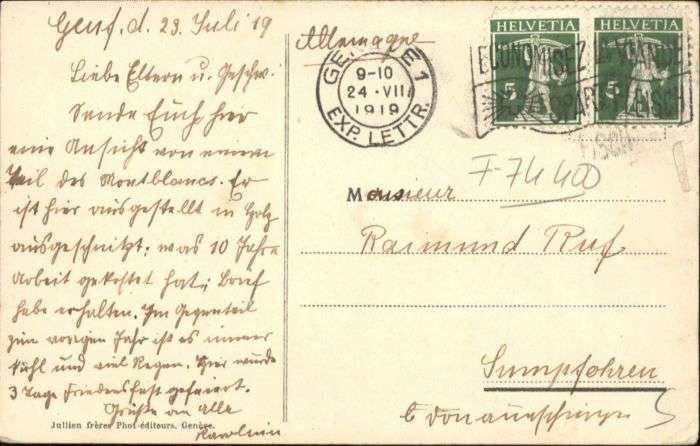 Genf. d. 23. Juli 19
Liebe Eltern u. Geschw.
Sende Euch hier
eine Ansicht von einem
Teil des Montblancs. Er
ist hier ausgestellt in Holz
ausgeschnitzt; was 10 Jahre
Arbeit gekostet hat; Brief
habe erhalten. Im Gegenteil
zum vorigen Jahr ist es immer
kühl und viel Regen. Hier wurde
3 Tage Friedensfest gefeiert.
Grüße an Alle
Jullien frères Phot-éditeurs, Genève.
Allemagne
GENÈVE 1
9-10
24 · VII
1919
EXP. LETTR.
HELVETIA
5
HELVETIA
5
ECONOMISEZ VIANDE
SPART FLEISCH
F-74 400
Monsieur
Raimund Ruf
Sumpfohren
b Donaueschingen